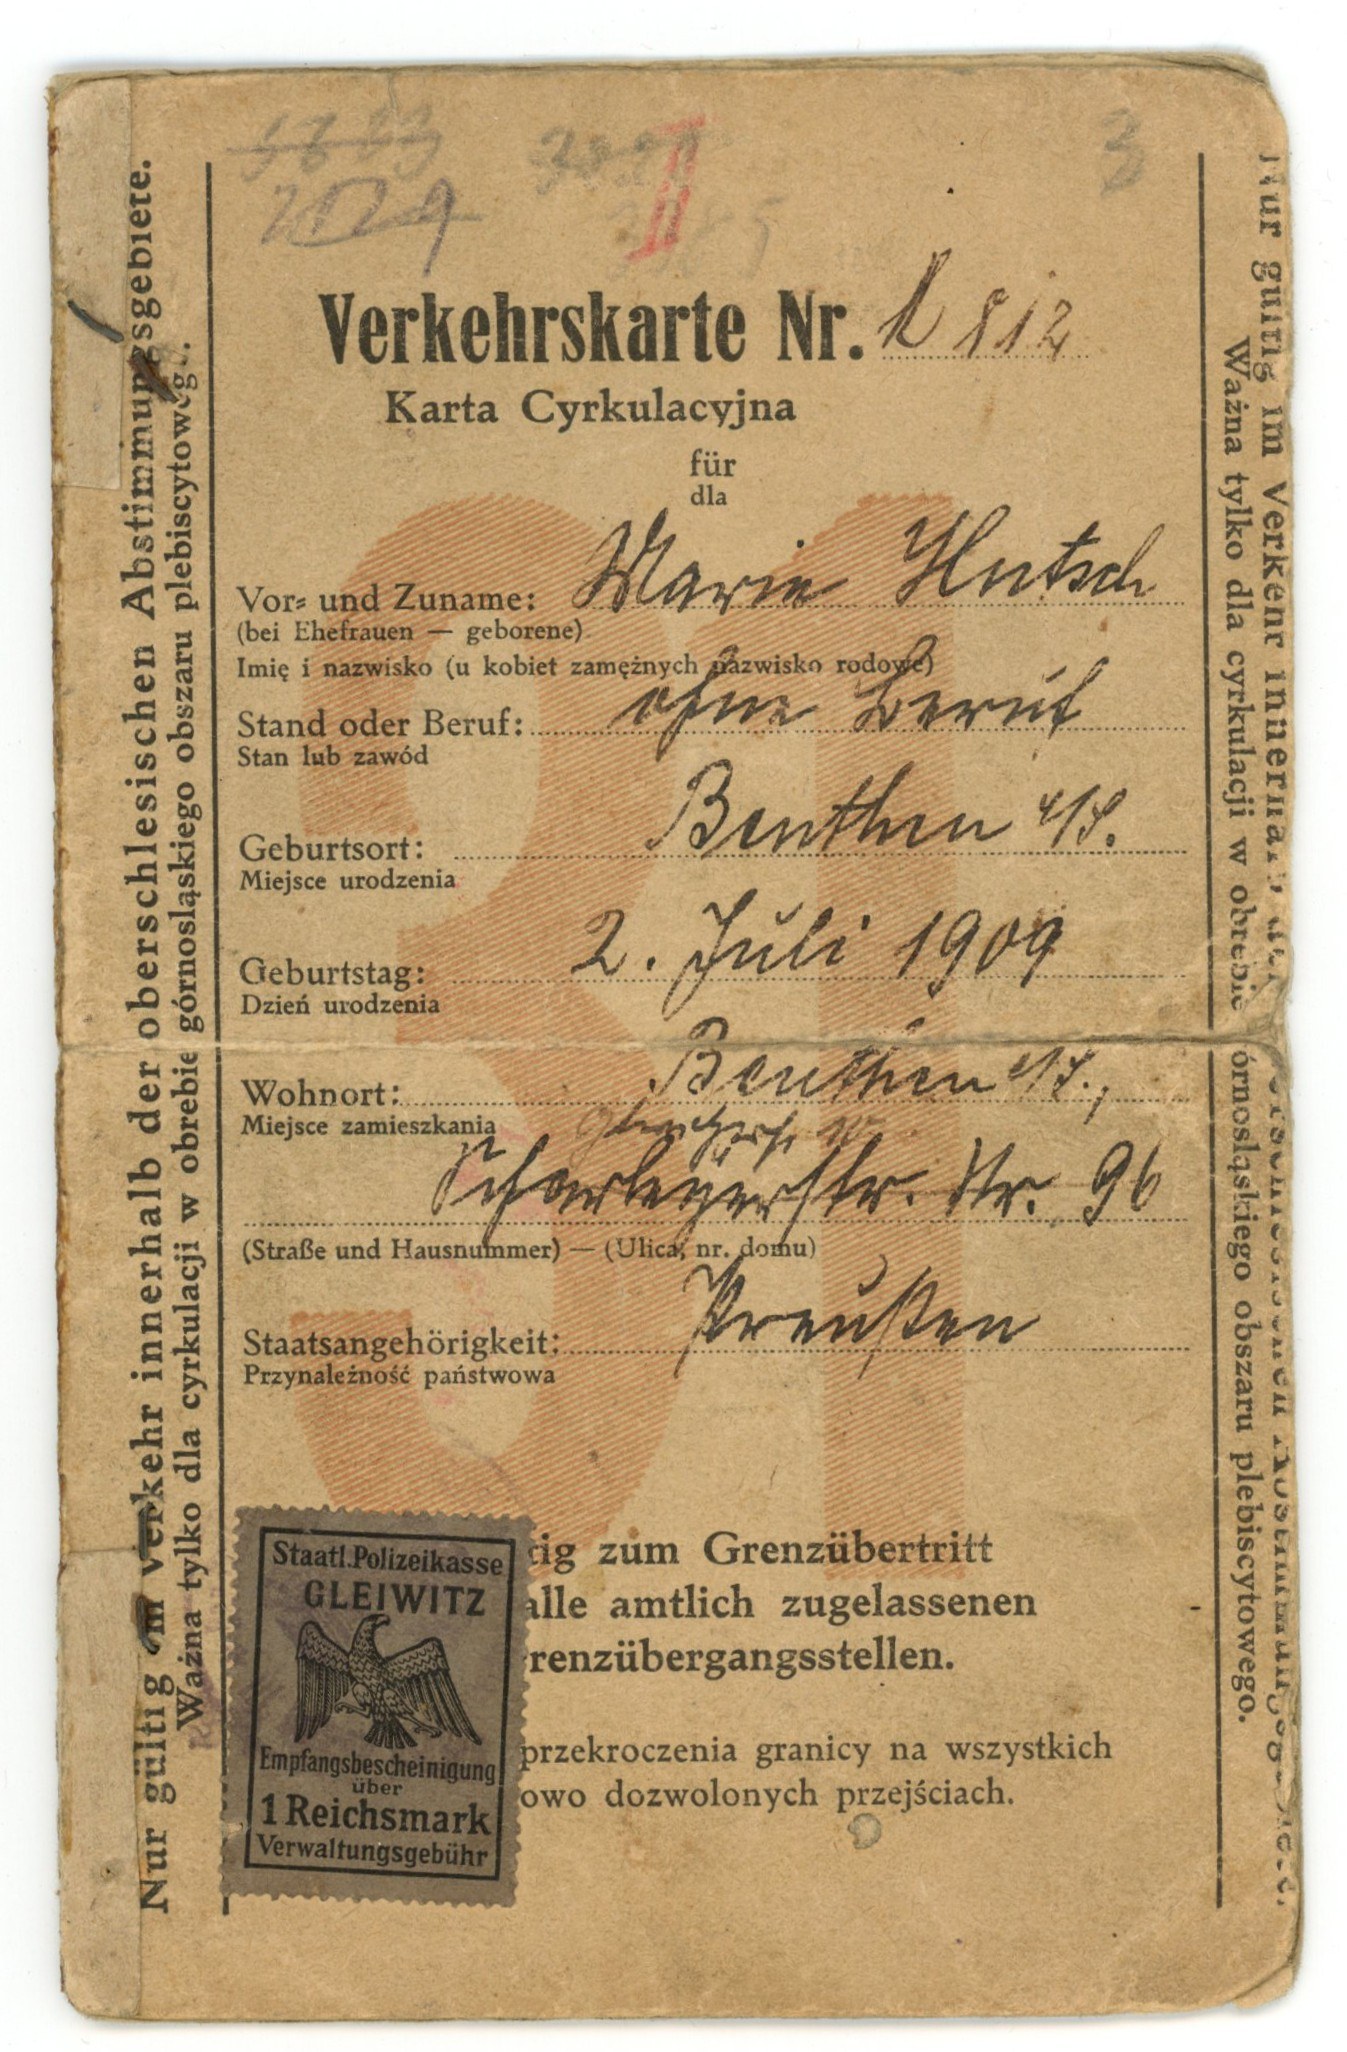 Nur gültig im Verkehr innerhalb der oberschlesischen Abstimmungsgebiete.
Ważna tylko dla cyrkulacji w obrebie górnosląskiego obszaru plebiscytowego.
II
3
Verkehrskarte Nr. 812
Karta Cyrkulacyjna
für
dla
Vor= und Zuname: Marie Hutsch
(bei Ehefrauen — geborene)
Imię i nazwisko (u kobiet zamężnych nazwisko rodowe)
Stand oder Beruf: ohne Beruf
Stan lub zawód
Geburtsort: Beuthen o/S.
Miejsce urodzenia
Geburtstag: 2. Juli 1909
Dzień urodzenia
Wohnort: Beuthen o/S.,
Miejsce zamieszkania
Scharleyerstr. Nr. 96
(Straße und Hausnummer) — (Ulica, nr. domu)
Staatsangehörigkeit: Preußen
Przynależność państwowa
tig zum Grenzübertritt
alle amtlich zugelassenen
renzübergangsstellen.
przekroczenia granicy na wszystkich
owo dozwolonych przejściach.
Staatl. Polizeikasse
GLEIWITZ
Empfangsbescheinigung
über
1 Reichsmark
Verwaltungsgebühr
Nur gültig im Verkehr innerhalb der oberschlesischen Abstimmungsgebiete.
Ważna tylko dla cyrkulacji w obrebie górnosląskiego obszaru plebiscytowego.